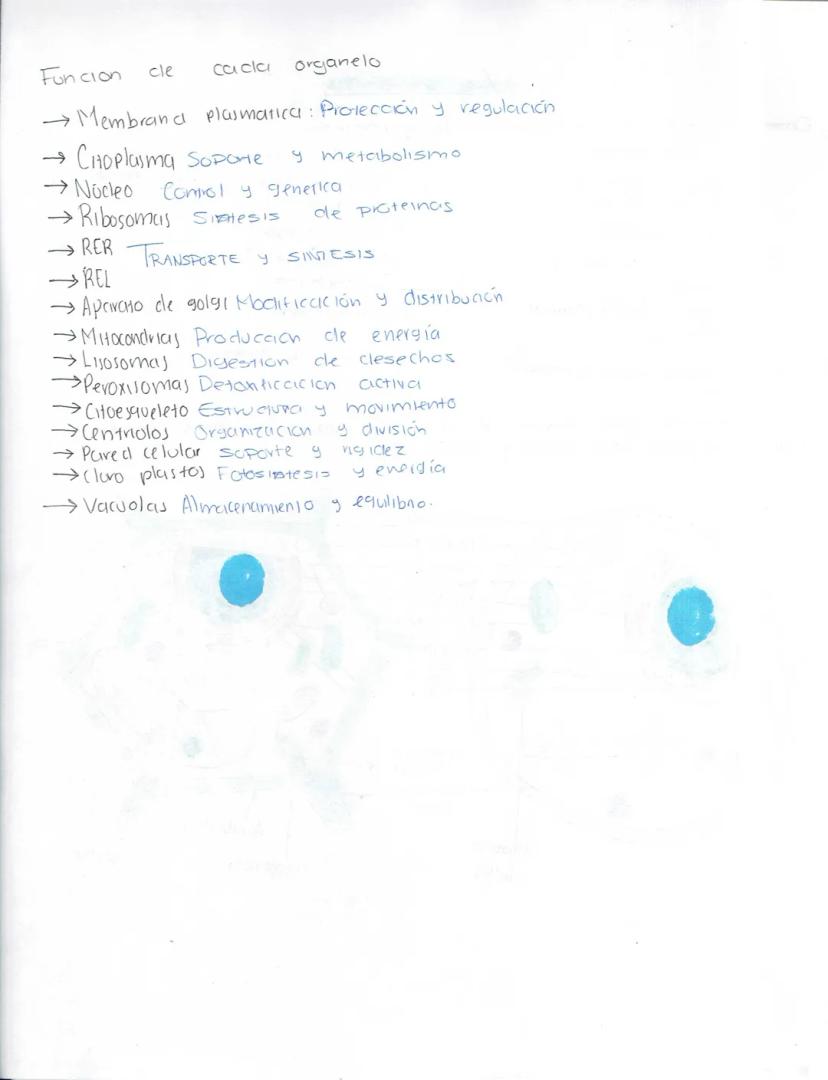 Funcion de cada organelo
→ Membrana plasmatica: Protección y regulación
→ Citoplasma Soporte y metabolismo
→ Núcleo Control y genetica
→ Ribosomas Sintesis de proteinas
→ RER TRANSPORTE y SINTESIS
→ REL
→ Aparato de golgi Modificación y distribución
→ Mitocondrias Produccion de energía
→ Lisosomas Digestion de desechos
→ Peroxisomas Detoxificacion activa
→ Citoesqueleto Estructura y movimiento
→ Centriolos Organizacion y división
→ Pared celular soporte y rigidez
→ Cloro plastos Fotosintesis y energía
→ Vacuolas Almacenamiento y equilibrio.